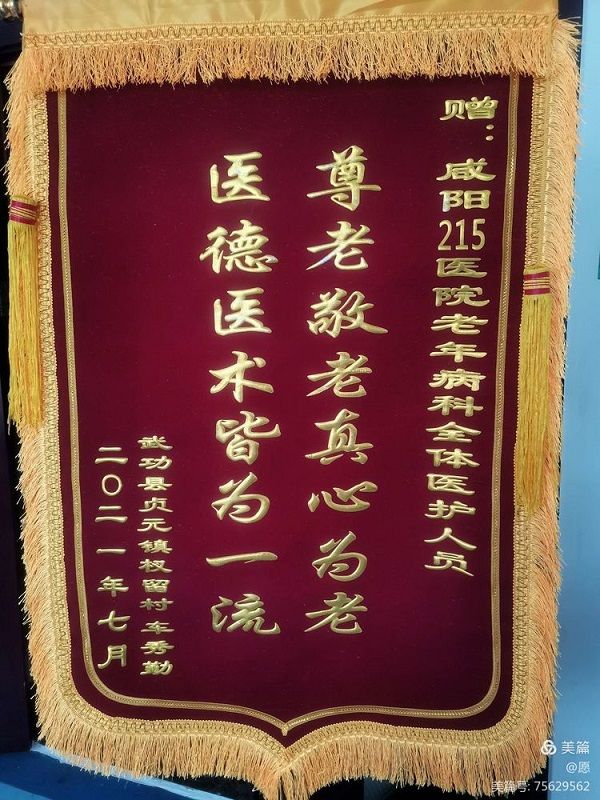 赠：咸阳215医院老年病科全体医护人员
尊老敬老真心为老
医德医术皆为一流
武功县贞元镇杈留村 车秀勤
二〇二一年七月
美篇
@愿
美篇号: 75629562